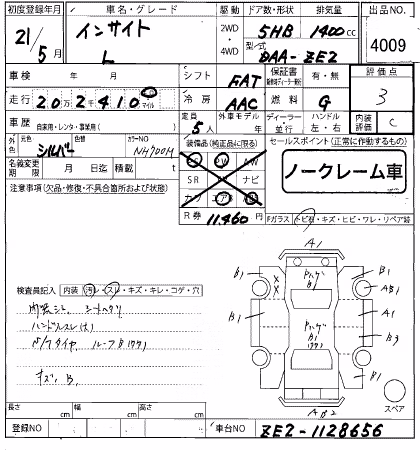 初度登録年月 車名・グレード 駆動 ドア数・形状 排気量 出品NO.
21/5月 インサイト L 2WD 4WD 5HB 1400cc 4009
型式 DAA-ZE2
車検 年 月 シフト FAT 保証書 有・無 評価点
走行 202410 マイル 冷房 AAC 燃料 G 3
車歴 自家用・レンタ・事業用( ) 定員 5人 外車モデル 年 ディーラー 並行 ハンドル 左・右 内装評価 C
外色 元色 シルバー 色替 カラーNO NH700M 装備品(純正品に限る) セールスポイント(正常に作動するもの)
名義変更期限 月 日 積載 t PW AW ノークレーム車
注意事項(欠品・修復・不具合箇所および状態) SR ナビ
カワ エアB
R券 11,460円 Fガラス トビ石・キズ・ヒビ・ワレ・リペア跡
A1
B1 B1
AB1
B1 A1
B3
B1
検査員記入 内装 汚レ・スレ・キズ・キレ・コゲ・穴
内装シミ
ハンドルスレ
キズ、B、
AB2 スペア
長さ cm 幅 cm 高さ cm
登録NO 車台NO ZE2-1128656